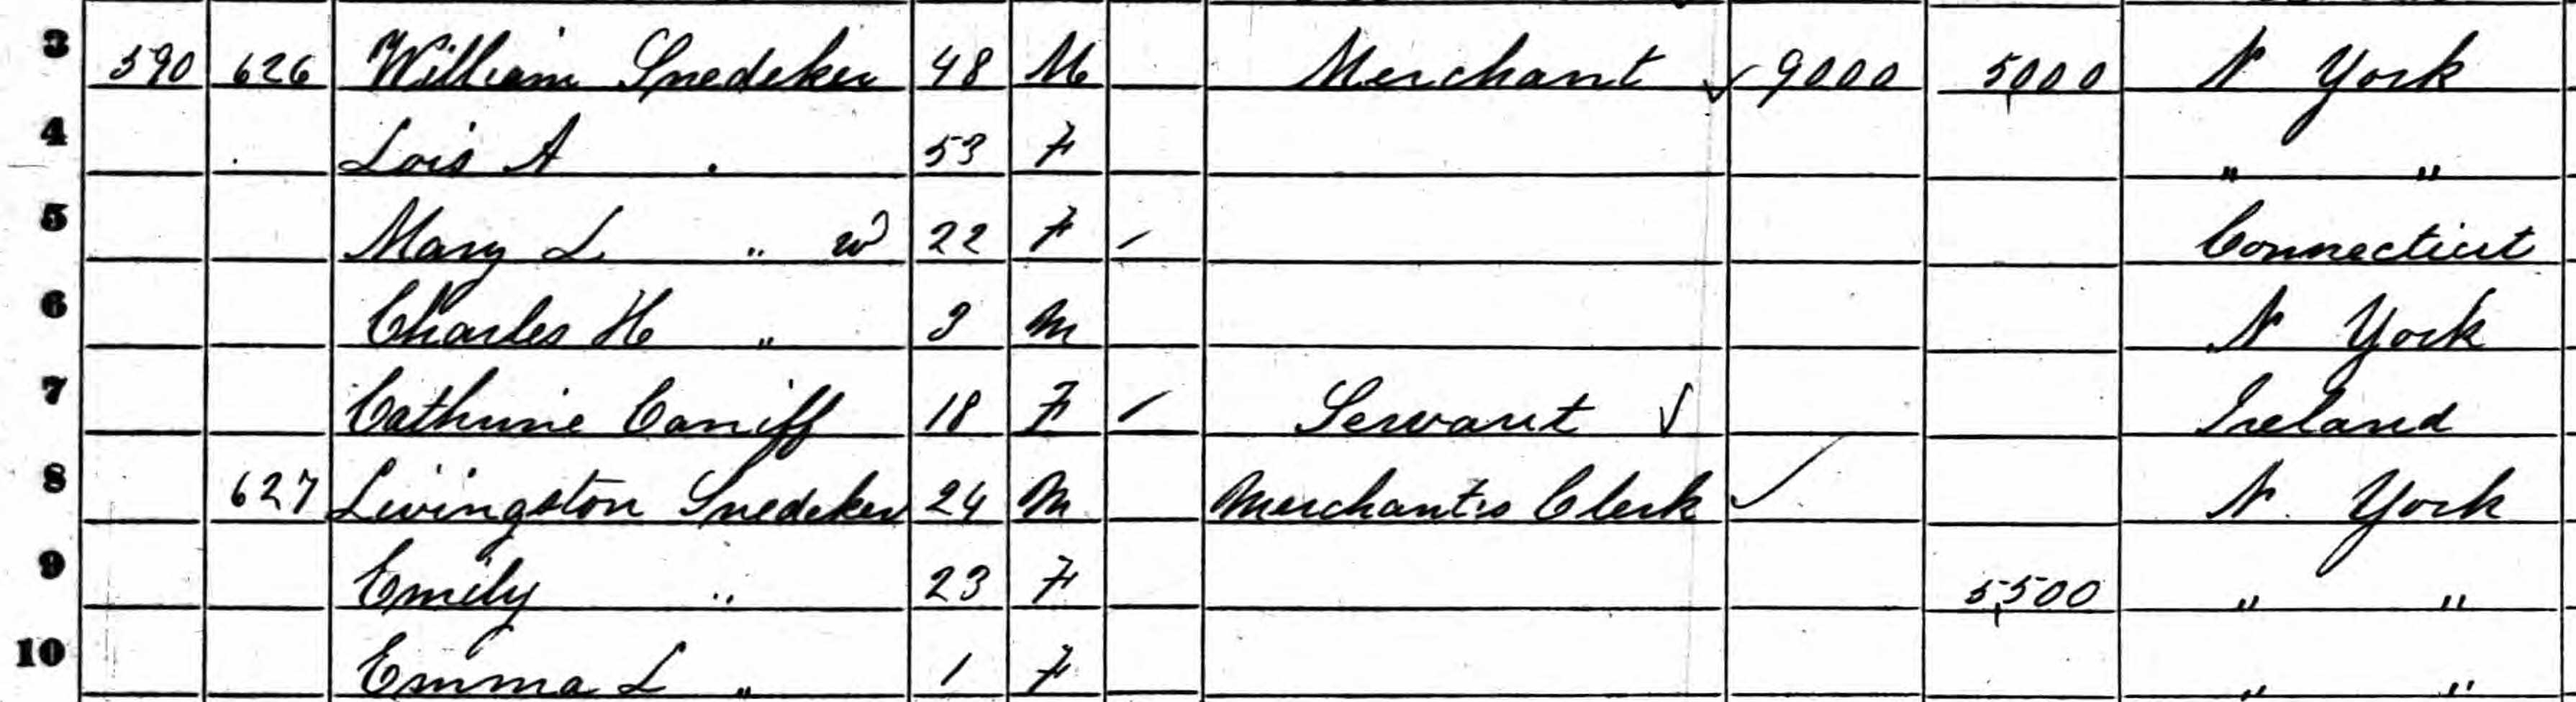 3 590 626 William Snedeker 48 M Merchant ✓ 9000 5,000 N York
4 Lois A 53 F " "
5 Mary L " W 22 F / Connecticut
6 Charles H " 3 M N York
7 Cathrine Caniff 18 F / Servant ✓ Ireland
8 627 Livingston Snedeker 24 M Merchants Clerk ✓ N. York
9 Emily " 23 F 5,500 " "
10 Emma L " 1 F " "